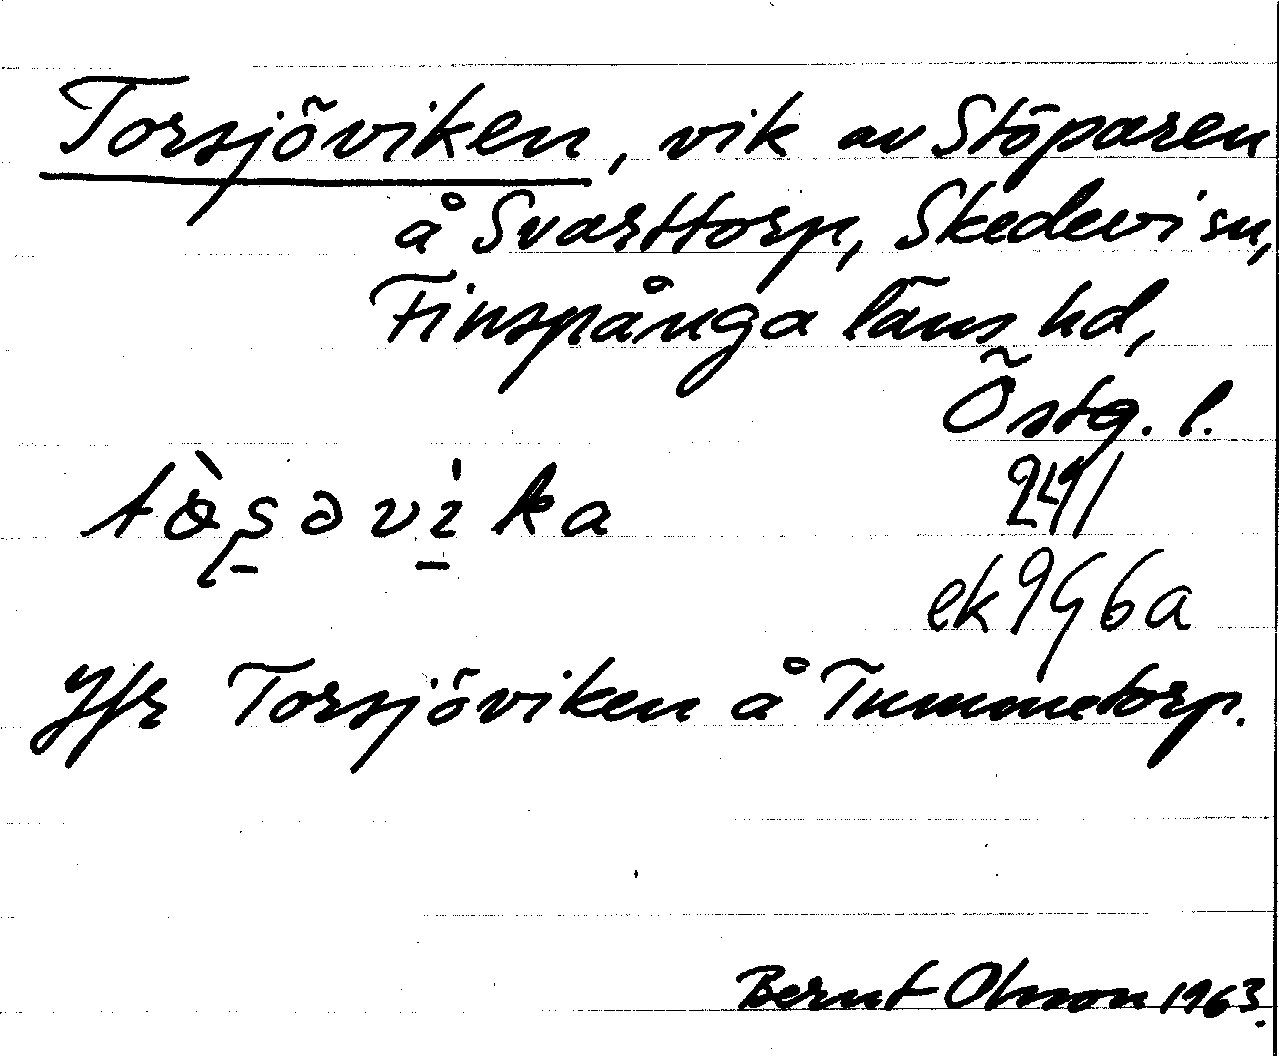 Torsjöviken, vik av Stöparen
å Svarttorp, Skedevi sn,
Finspånga läns hd,
Östg. l.
241
ek 9G6a
Jfr Torsjöviken å Tummetorp.
Bernt Olsson 1963.